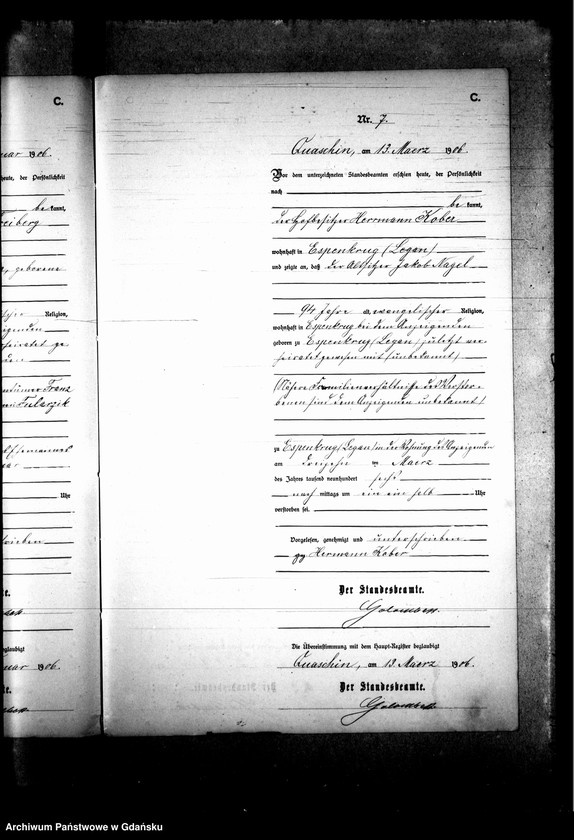 C.
uar 1906.
heute, der Persönlichkeit
be kannt,
reiberg
, geborene
Religion,
Franz
Uhr
uar 1906.
C.
Nr. 7.
Quaschin, am 13. Maerz 1906.
Vor dem unterzeichneten Standesbeamten erschien heute, der Persönlichkeit
nach
be kannt,
der Hofbesitzer Herrmann Kober
wohnhaft in Espenkrug (Legan)
und zeigte an, daß der Altsitzer Jakob Nagel
94 Jahre evangelischer Religion,
wohnhaft in Espenkrug bei dem Anzeigenden
geboren zu Espenkrug (Legan) zuletzt ver
heiratet gewesen mit (unbekannt)
(Nähere Familienverhältnisse des Verstor-
benen sind dem Anzeigenden unbekannt)
zu Espenkrug (Legan) in der Wohnung des Anzeigenden
am dreizehn ten Maerz
des Jahres tausend neunhundert sechs
nach mittags um ein ein halb Uhr
verstorben sei.
Vorgelesen, genehmigt und unterschrieben
gez Hermann Kober
Der Standesbeamte.
Die Übereinstimmung mit dem Haupt-Register beglaubigt
Quaschin, am 13. Maerz 1906.
Der Standesbeamte.
Archiwum Państwowe w Gdańsku